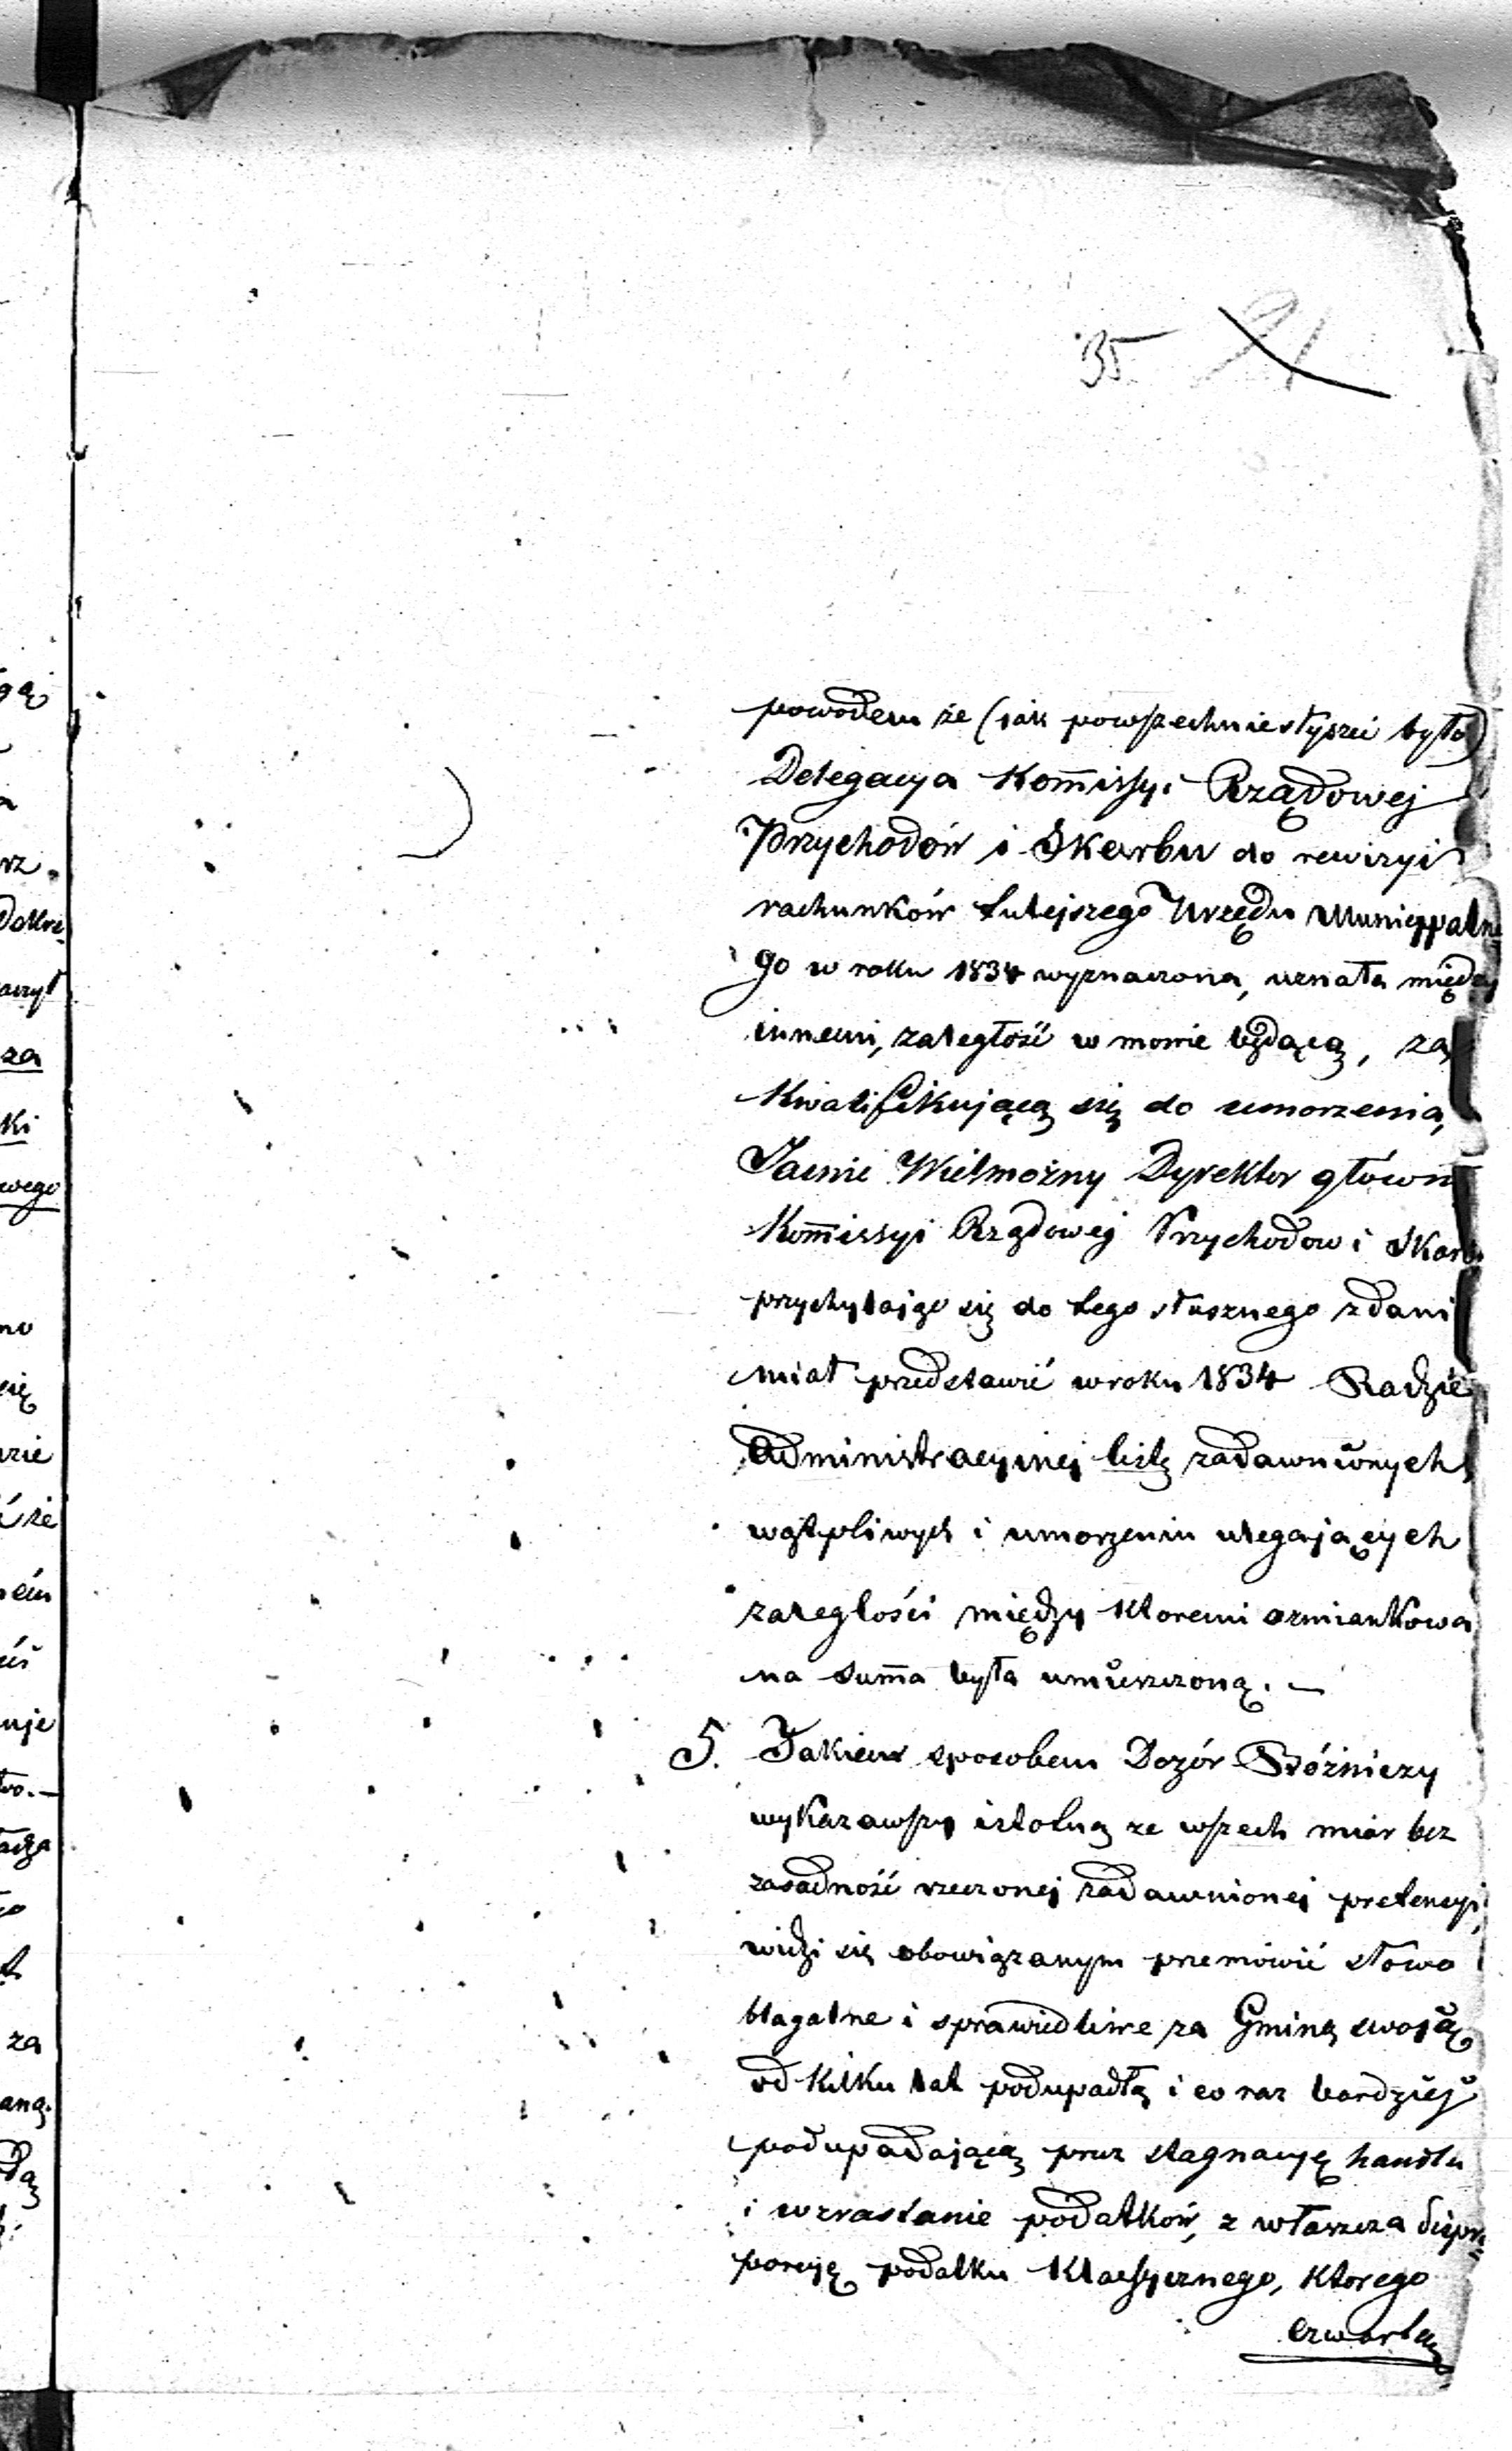 35 21
powodem że (jak powszechnie słyszeć było)
Delegacya Kom̅issyi Rządowej
Przychodów i Skarbu do rewizyi
rachunków tutejszego Urzędu Municypalne
go w roku 1834 wyznaczona, uznała między
innemi, zaległość w mowie będącą, za
kwalifikującą się do umorzenia,
Jaśnie Wielmożny Dyrektor główn
Kom̅issyi Rządowej Przychodow i Skarbu
przychylając się do tego słusznego zdani
miał przedstawić w roku 1834 Radzie
Administracyinej listę zadawnionych
wątpliwych i umorzeniu ulegających
zaległości między ktoremi wzmiankowa
na sum̅a była umieszczoną. —
5. Takiem sposobem Dozór Bóżniczy
wykazawszy istotną ze wszech miar bez
zasadność rzeczonej zadawnionej pretensyi,
widzi się obowiązanym przemówić słowo
błagalne i sprawiedliwe za Gminą swoją
od kilku lat podupadłą i co raz bardziej
podupadającą przez stagnacyę handlu
i wzrastanie podatków, z właszcza dispro
porcyę podatku klassycznego, ktorego
czwartą